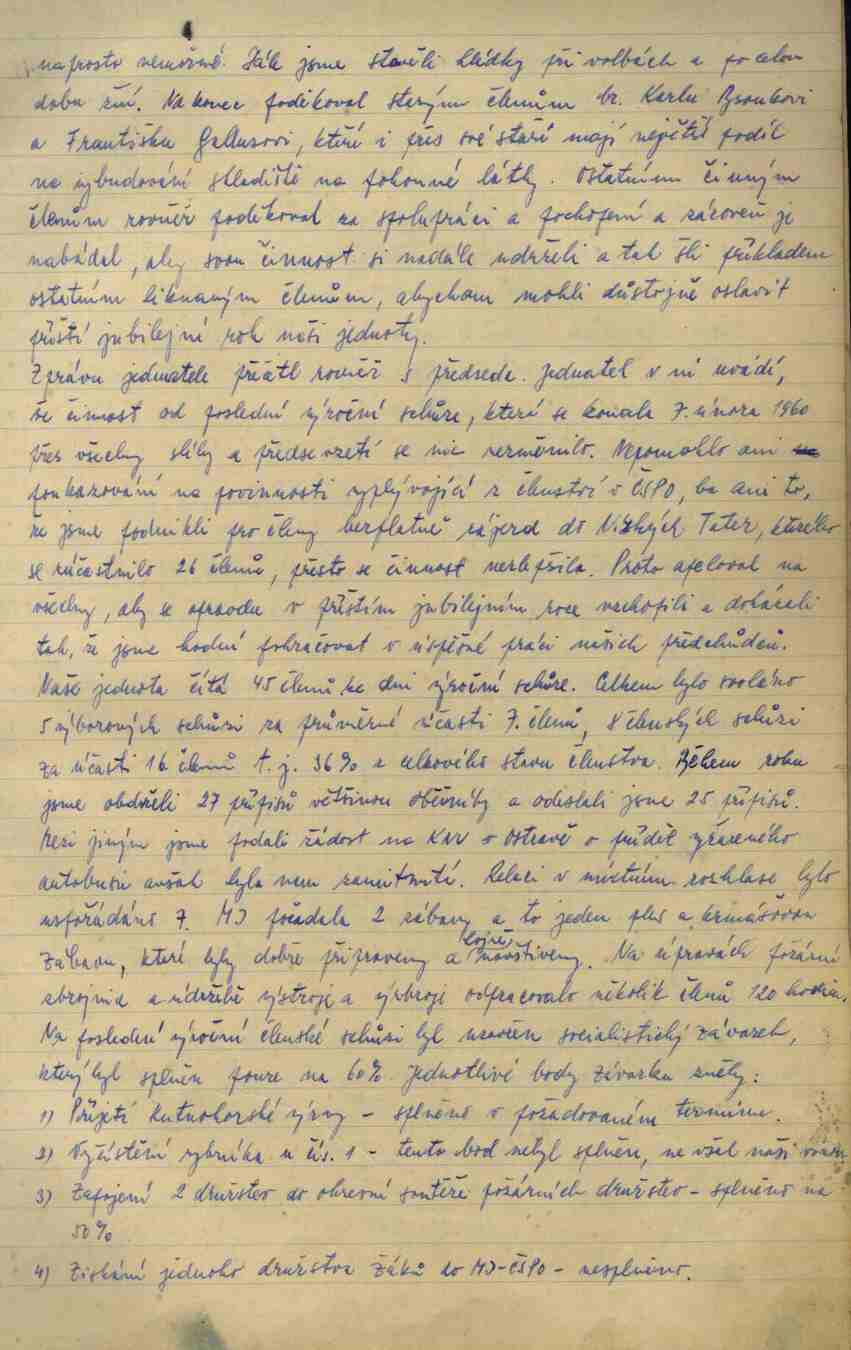 naprosto nemožné. Dále jsme stavěli hlídky při volbách a po celou
dobu žní. Na konec poděkoval starým členům br. Karlu
a Františku, kteří i přes své stáří mají největší podíl
na vybudování skladiště na pohonné látky. Ostatním činným
členům rovněž poděkoval za spolupráci a pochopení a zároveň je
nabádal, aby svou činnost si nadále udrželi a tak šli příkladem
ostatním liknavým členům, abychom mohli důstojně oslavit
příští jubilejní rok naší jednoty.
Zprávu jednatele přečetl rovněž s předseda. Jednatel v ní uvádí,
že činnost od poslední výroční schůze, která se konala 7. února 1960
přes všechny sliby a předsevzetí se nic nezměnilo. Nepomohlo ani
poukazování na povinnosti vyplývající z členství v ČSPO, ba ani to,
že jsme podnikli pro členy bezplatně zájezd do Nízkých Tater, kterého
se zúčastnilo 26 členů, přesto se činnost nezlepšila. Proto apeloval na
všechny, aby se opravdu v příštím jubilejním roce vzchopili a dokázali
tak, že jsme hodni pokračovat v úspěšné práci našich předchůdců.
Naše jednota čítá 45 členů ke dni výroční schůze. Celkem bylo svoláno
5 výborových schůzí za průměrné účasti 7. členů, 8 členských schůzí
za účasti 16 členů t. j. 36% z celkového stavu členstva. Během roku
jsme obdrželi 27 přípisů většinou oběžníky a odeslali jsme 25 přípisů.
Mezi jiným jsme podali žádost na KAV v Ostravě o příděl vyřazeného
autobusu avšak byla nám zamítnutá. Relací v místním rozhlase bylo
uspořádáno 7. MJ pořádala 2 zábavy a to jeden ples a krmášovou
zábavu, které byly dobře připraveny a hojně navštíveny. Na úpravách požární
zbrojnice a údržbě výstroje a výzbroje odpracovalo několik členů 120 hodin.
Na poslední výroční členské schůzi byl uzavřen socialistický závazek,
který byl splněn pouze na 60%. Jednotlivé body závazku zněly:
1) Přijetí Kutnohorské výzvy - splněno v požadovaném termínu.
2) Vyčistění rybníka u čís. 1 - tento bod nebyl splněn, ne však naší vinou
3) Zapojení 2 družstev do okresní soutěže požárních družstev - splněno na
50%
4) Získání jednoho družstva žáků do MJ-ČSPO - nesplněno.